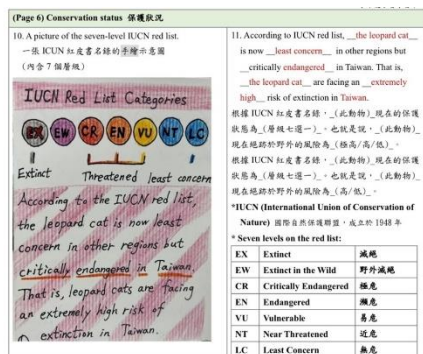 (Page 6) Conservation status 保護狀況
10. A picture of the seven-level IUCN red list.
一張 ICUN 紅皮書名錄的手繪示意圖
(內含 7 個層級)
IUCN Red List Categories
EX EW CR EN VU NT LC
Extinct Threatened least concern
According to the IUCN red list,
the leopard cat is now least
concern in other regions but
critically endangered in Taiwan.
That is, leopard cats are facing
an extremely high risk of
extinction in Taiwan.
11. According to IUCN red list, __the leopard cat__
is now __least concern__ in other regions but
__critically endangered__ in Taiwan. That is,
__the leopard cat__ are facing an __extremely
high__ risk of extinction in Taiwan.
根據 IUCN 紅皮書名錄，_(此動物)_現在的保護
狀態為_(層級七選一)_。也就是說，_(此動物)_
現在絕跡於野外的風險為_(極高/高/低)_。
根據 IUCN 紅皮書名錄，_(此動物)_現在的保護
狀態為_(層級七選一)_。也就是說，_(此動物)_
現在絕跡於野外的風險為_(高/低)_。
*IUCN (International Union of Conservation of
Nature) 國際自然保護聯盟，成立於 1948 年
* Seven levels on the red list:
EX Extinct 滅絕
EW Extinct in the Wild 野外滅絕
CR Critically Endangered 極危
EN Endangered 瀕危
VU Vulnerable 易危
NT Near Threatened 近危
LC Least Concern 無危